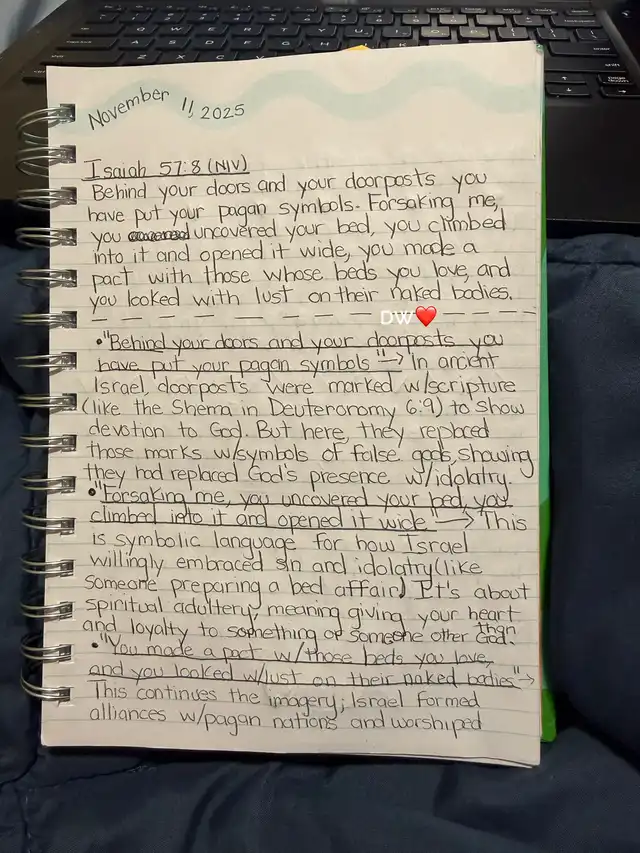 November 11, 2025
Isaiah 57:8 (NIV)
Behind your doors and your doorposts you
have put your pagan symbols. Forsaking me,
you uncovered your bed, you climbed
into it and opened it wide, you made a
pact with those whose beds you love, and
you looked with lust on their naked bodies.
DW❤️
•"Behind your doors and your doorposts you
have put your pagan symbols"→ In ancient
Israel, doorposts were marked w/scripture
(like the Shema in Deuteronomy 6:9) to show
devotion to God. But here, they replaced
those marks w/symbols of false gods, showing
they had replaced God's presence w/idolatry.
•"Forsaking me, you uncovered your bed, you
climbed into it and opened it wide"→ This
is symbolic language for how Israel
willingly embraced sin and idolatry(like
someone preparing a bed affair) It's about
spiritual adultery, meaning giving your heart
and loyalty to something or someone other than God.
•"You made a pact w/those beds you love,
and you looked w/lust on their naked bodies"→
This continues the imagery; Israel formed
alliances w/pagan nations and worshiped